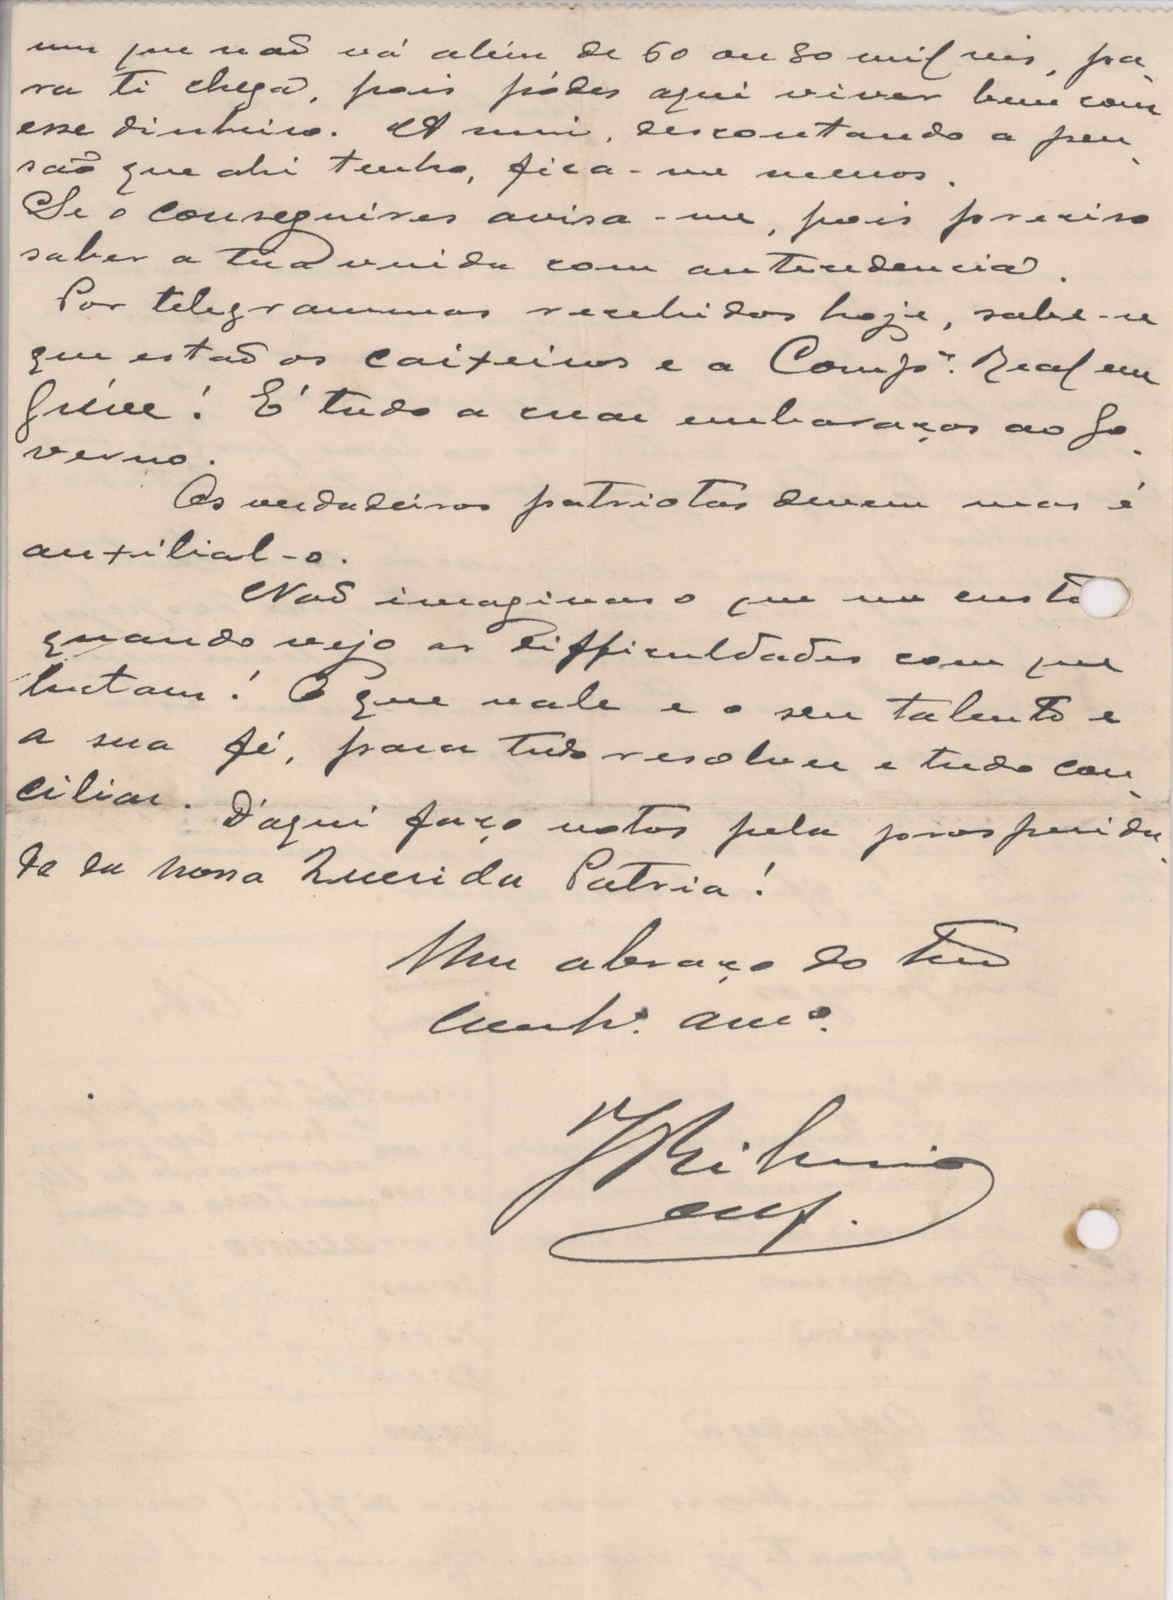 um que não vá além de 60 ou 80 mil reis, pa-
ra ti chega, pois pódes aqui viver bem com
esse dinheiro. A mim, descontando a pen-
são que ahi tenho, fica-me menos.
Se o conseguires avisa-me, pois preciso
saber a tua vinda com antecedencia.
Por telegrammas recebidos hoje, sabe-se
que estão os caixeiros e a Compª. Real em
gréve! É tudo a crear embaraços ao Go-
verno.
Os verdadeiros patriotas devem mas é
auxilial-o.
Não imaginas o que me custa
quando vejo as difficuldades com que
luctam! O que vale é o seu talento e
a sua fé, para tudo resolver e tudo con-
ciliar. D'aqui faço votos pela prosperida-
de da nossa Querida Patria!
Um abraço do teu
amº.